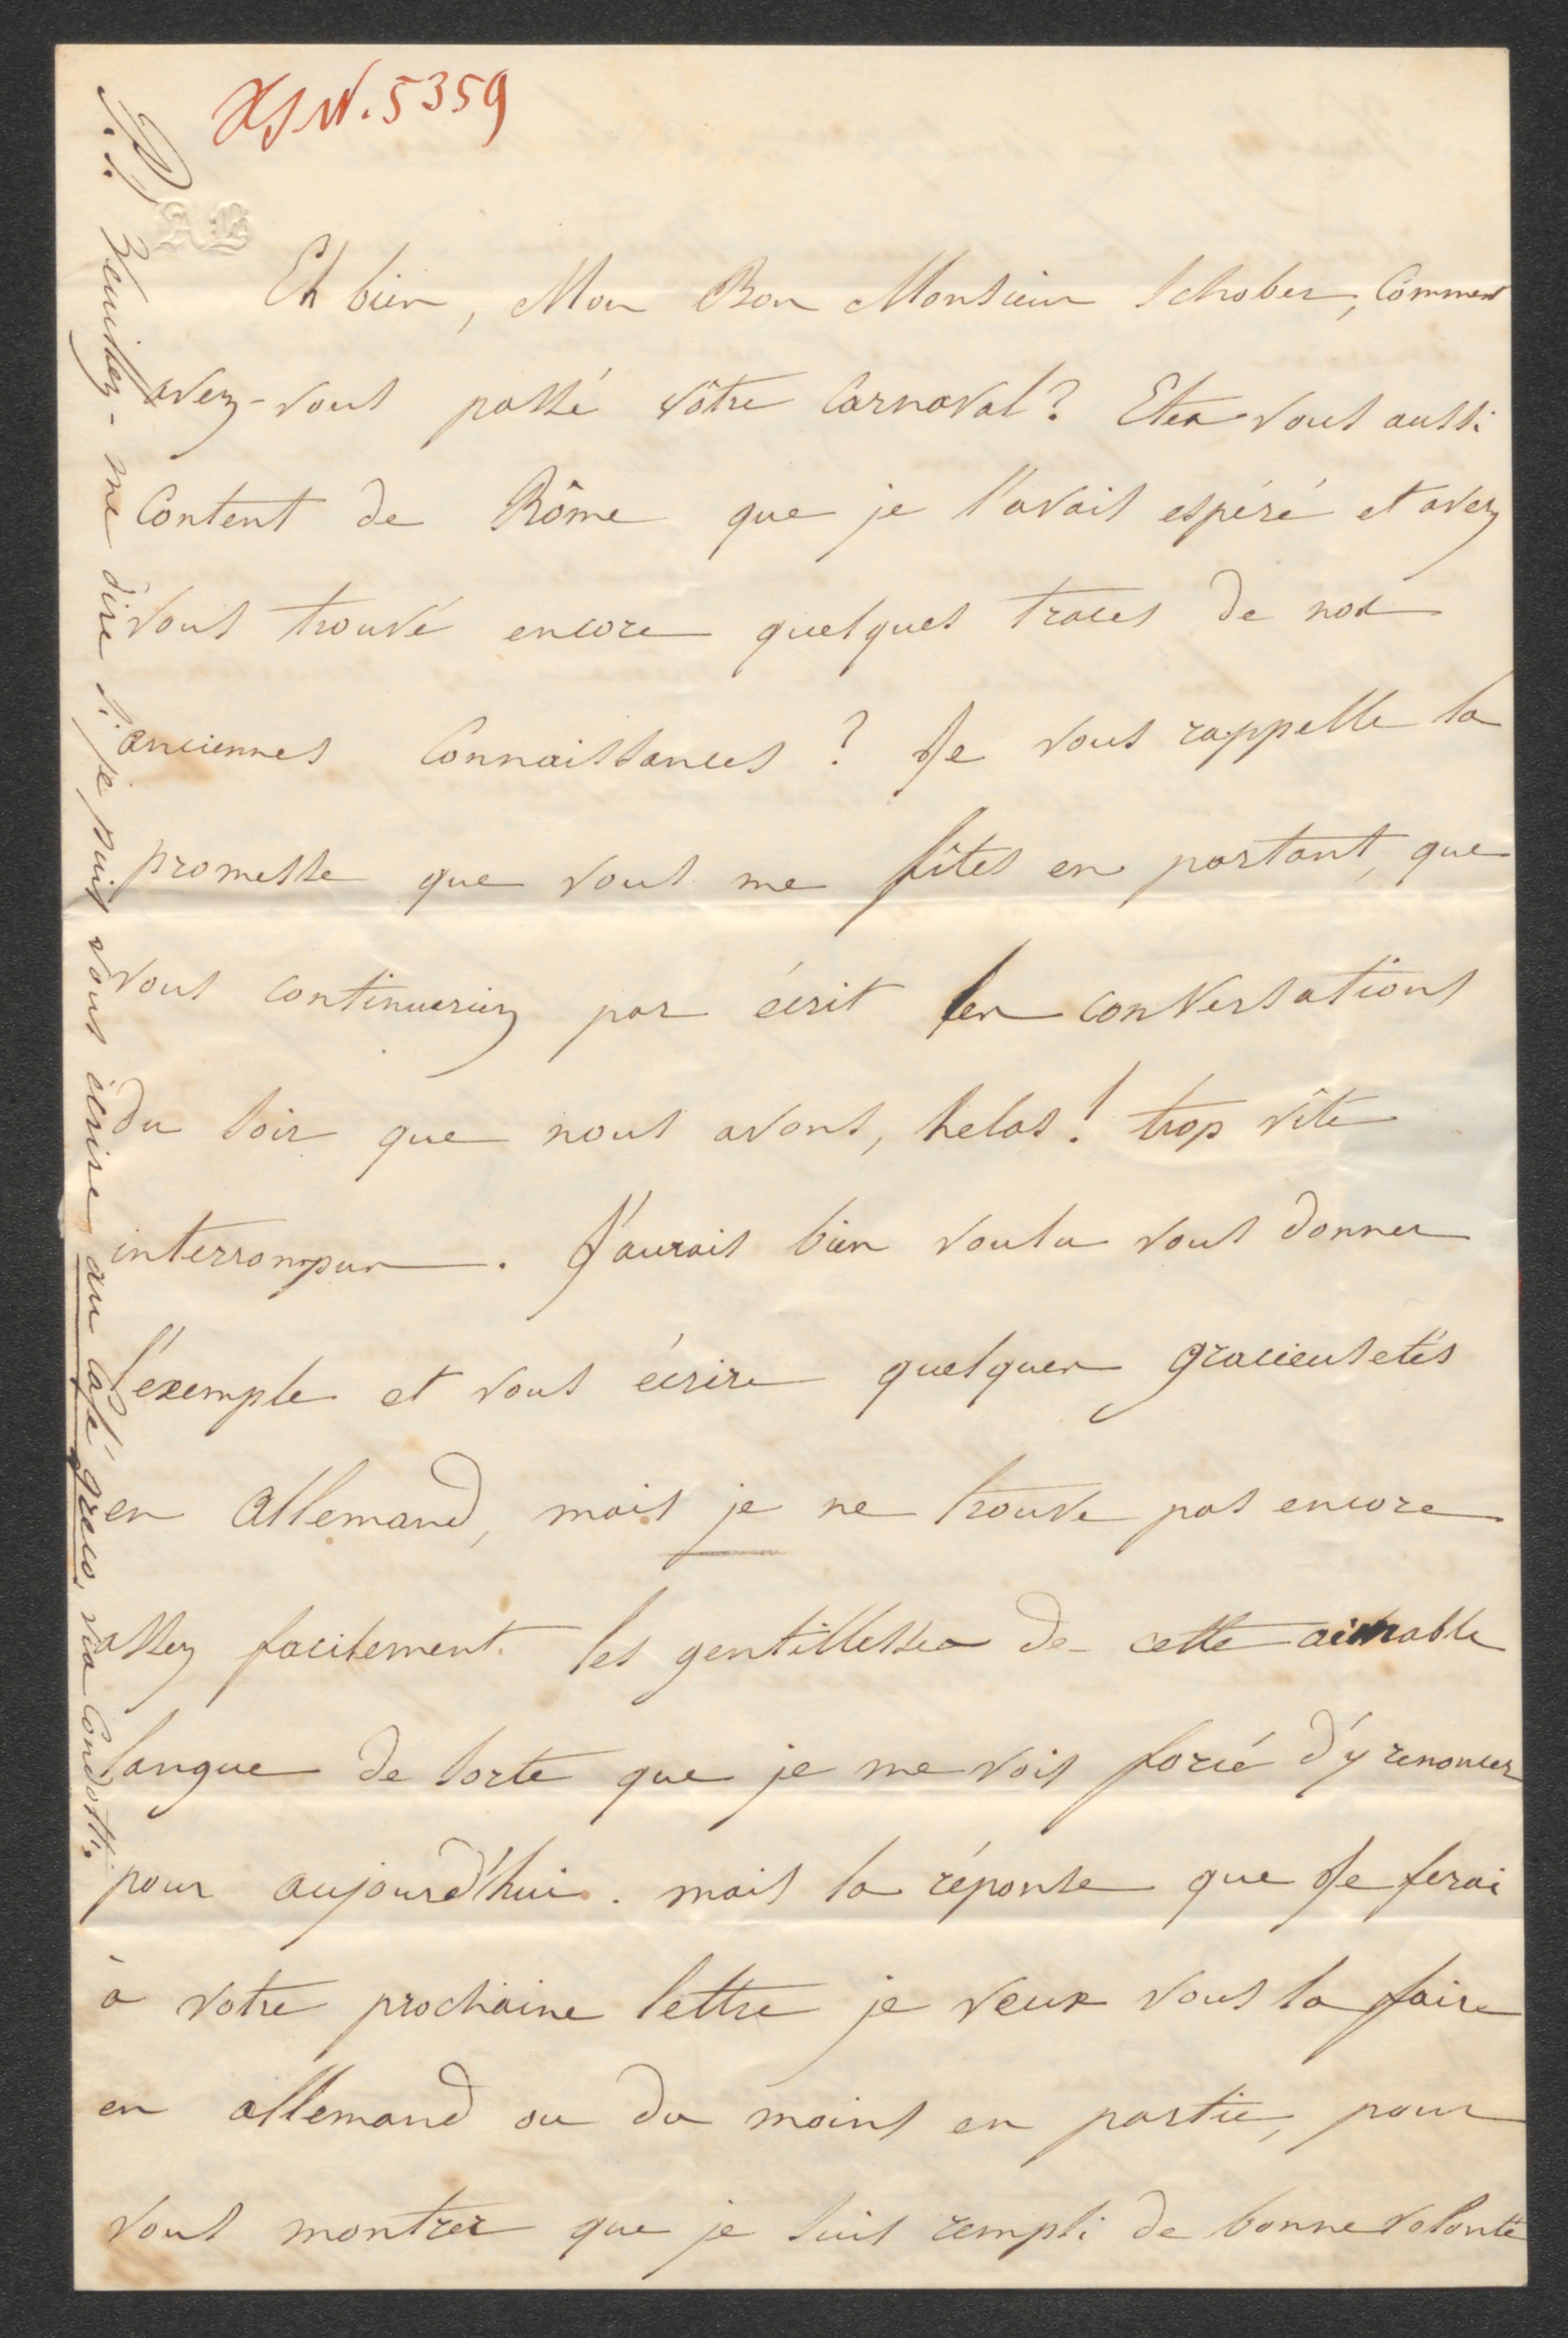 JN. 5359
AB
Eh bien, Mon Bon Monsieur Schober, Comment
avez-vous passé vôtre Carnaval? Etes vous aussi
Content de Rôme que je l'avais espéré et avez
vous trouvé encore quelques traces de nos
anciennes Connaissances? Je vous rappelle la
promesse que vous me fîtes en partant, que
vous continueriez par écrit les conversations
du soir que nous avons, helas! trop vîte
interrompues. J'aurais bien voulu vous donner
l'exemple et vous écrire quelques gracieusetés
en Allemand, mais je ne trouve pas encore
assez facilement les gentillesses de cette aimable
langue de sorte que je me vois forcé d'y renoncer
pour aujourd'hui. mais la réponse que Je ferai
à votre prochaine lettre je veux vous la faire
en allemand ou du moins en partie, pour
vous montrer que je suis rempli de bonne volonté
P.S. Veuillez-me dire si je puis vous écrire au Café greco, via Condotti.